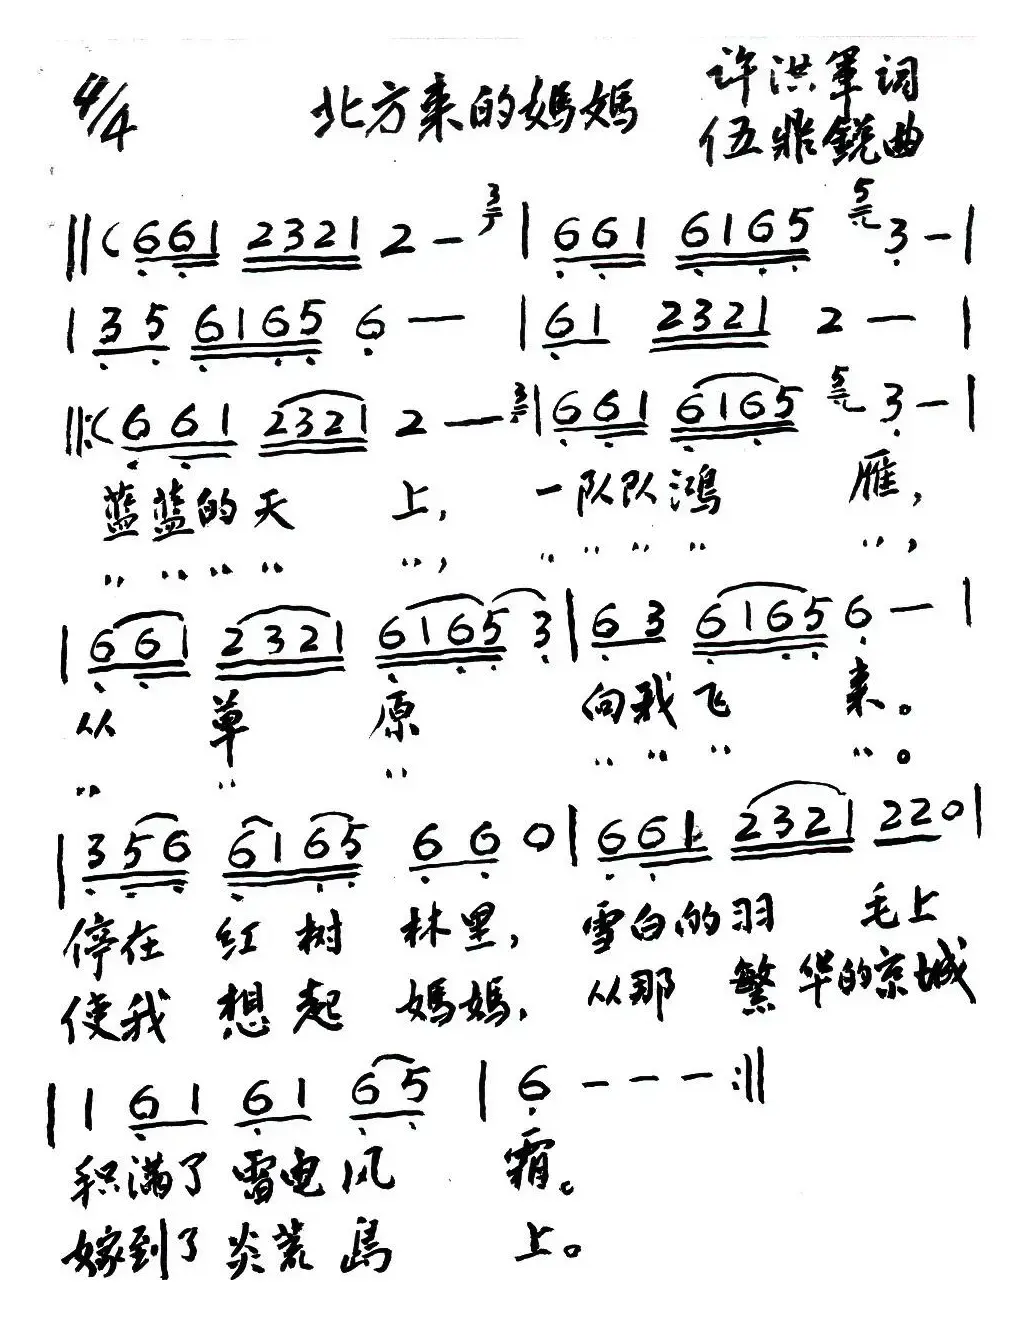 4/4 北方来的媽媽 许洪軍词
伍鼎鋭曲
‖( 661 2321 2 — 3 | 661 6165 5 3 — |
| 35 6165 6 — | 61 2321 2 — |
‖:( 661 2321 2 — 3 | 661 6165 5 3 — |
蓝蓝的天 上，一队队鸿 雁，
〃 〃 〃 〃 〃，〃 〃 〃 〃 〃，
| 661 2321 6165 3 | 63 6165 6 — |
从 草 原 向我飞 来。
〃 〃 〃 〃 〃 〃 〃。
| 356 6165 66 0 | 661 2321 220 |
停在 红树 林里，雪白的羽 毛上
使我 想起 媽媽，从那 繁华的京城
| 1 61 61 65 | 6 - - - :‖
积满了雷电风 霜。
嫁到了炎荒島 上。